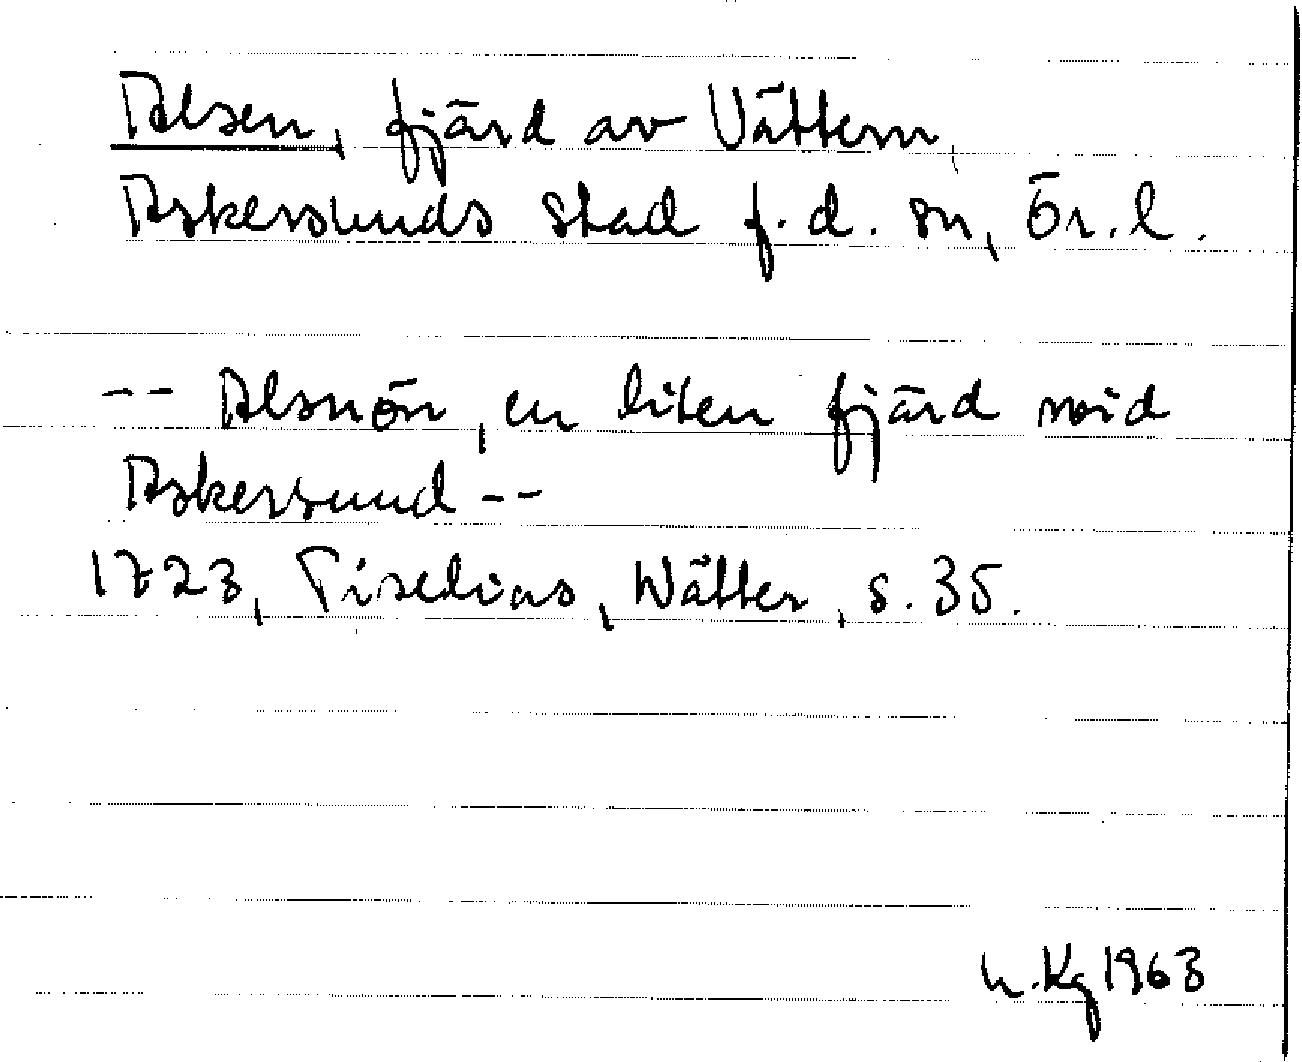 Alsen, fjärd av Vättern,
Askersunds stad f.d. sn, Ör. l.
-- Alsnön, en liten fjärd wid
Askersund --
1723, Tiselius, Wätter, s. 35.
h. Kg 1963